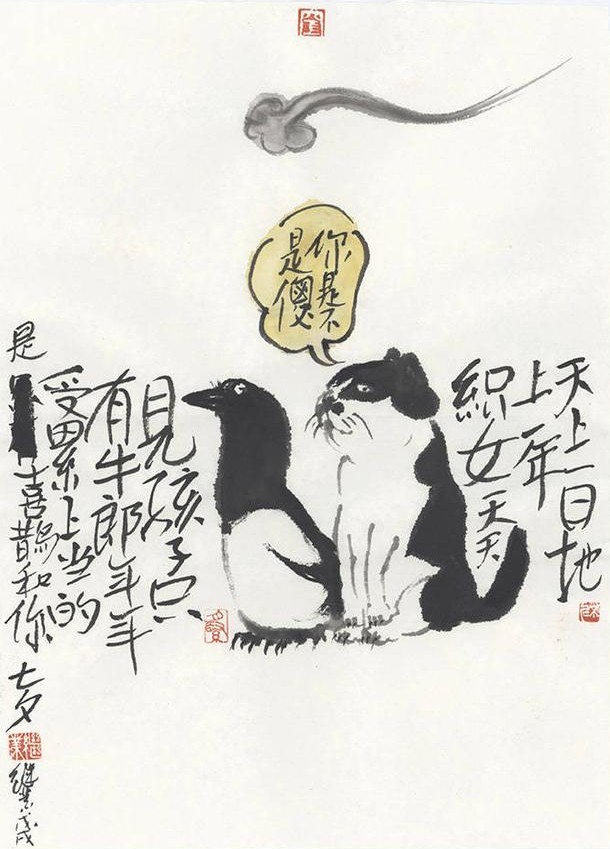 你是不
是傻
天上一日地
上一年
織女天天
見孩子只
有牛郎年年
受累上当的
是喜鵲和你 七夕
戊戌